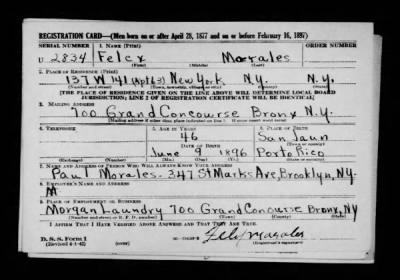 REGISTRATION CARD—(Men born on or after April 28, 1877 and on or before February 16, 1897)
SERIAL NUMBER 1. NAME (Print) ORDER NUMBER
U 2834 Felex Morales
(First) (Middle) (Last)
2. PLACE OF RESIDENCE (Print)
137 W 141 (Apt 63) New York N.Y. N.Y.
(Number and street) (Town, township, village, or city) (County) (State)
[THE PLACE OF RESIDENCE GIVEN ON THE LINE ABOVE WILL DETERMINE LOCAL BOARD
JURISDICTION; LINE 2 OF REGISTRATION CERTIFICATE WILL BE IDENTICAL]
3. MAILING ADDRESS
700 Grand Concourse Bronx N.Y.
[Mailing address if other than place indicated on line 2. If same insert word same]
4. TELEPHONE 5. AGE IN YEARS 6. PLACE OF BIRTH
46 San Jaun
DATE OF BIRTH (Town or county)
June 9 1896 Porto Rico
(Exchange) (Number) (Mo.) (Day) (Yr.) (State or country)
7. NAME AND ADDRESS OF PERSON WHO WILL ALWAYS KNOW YOUR ADDRESS
Paul Morales - 347 St Marks Ave, Brooklyn, N.Y.
8. EMPLOYER'S NAME AND ADDRESS
9. PLACE OF EMPLOYMENT OR BUSINESS
Morgan Laundry 700 Grand Concourse Bronx, NY
(Number and street or R. F. D. number) (Town) (County) (State)
I AFFIRM THAT I HAVE VERIFIED ABOVE ANSWERS AND THAT THEY ARE TRUE.
D. S. S. Form 1
(Revised 4-1-42) (over) Morales
(Registrant's signature)